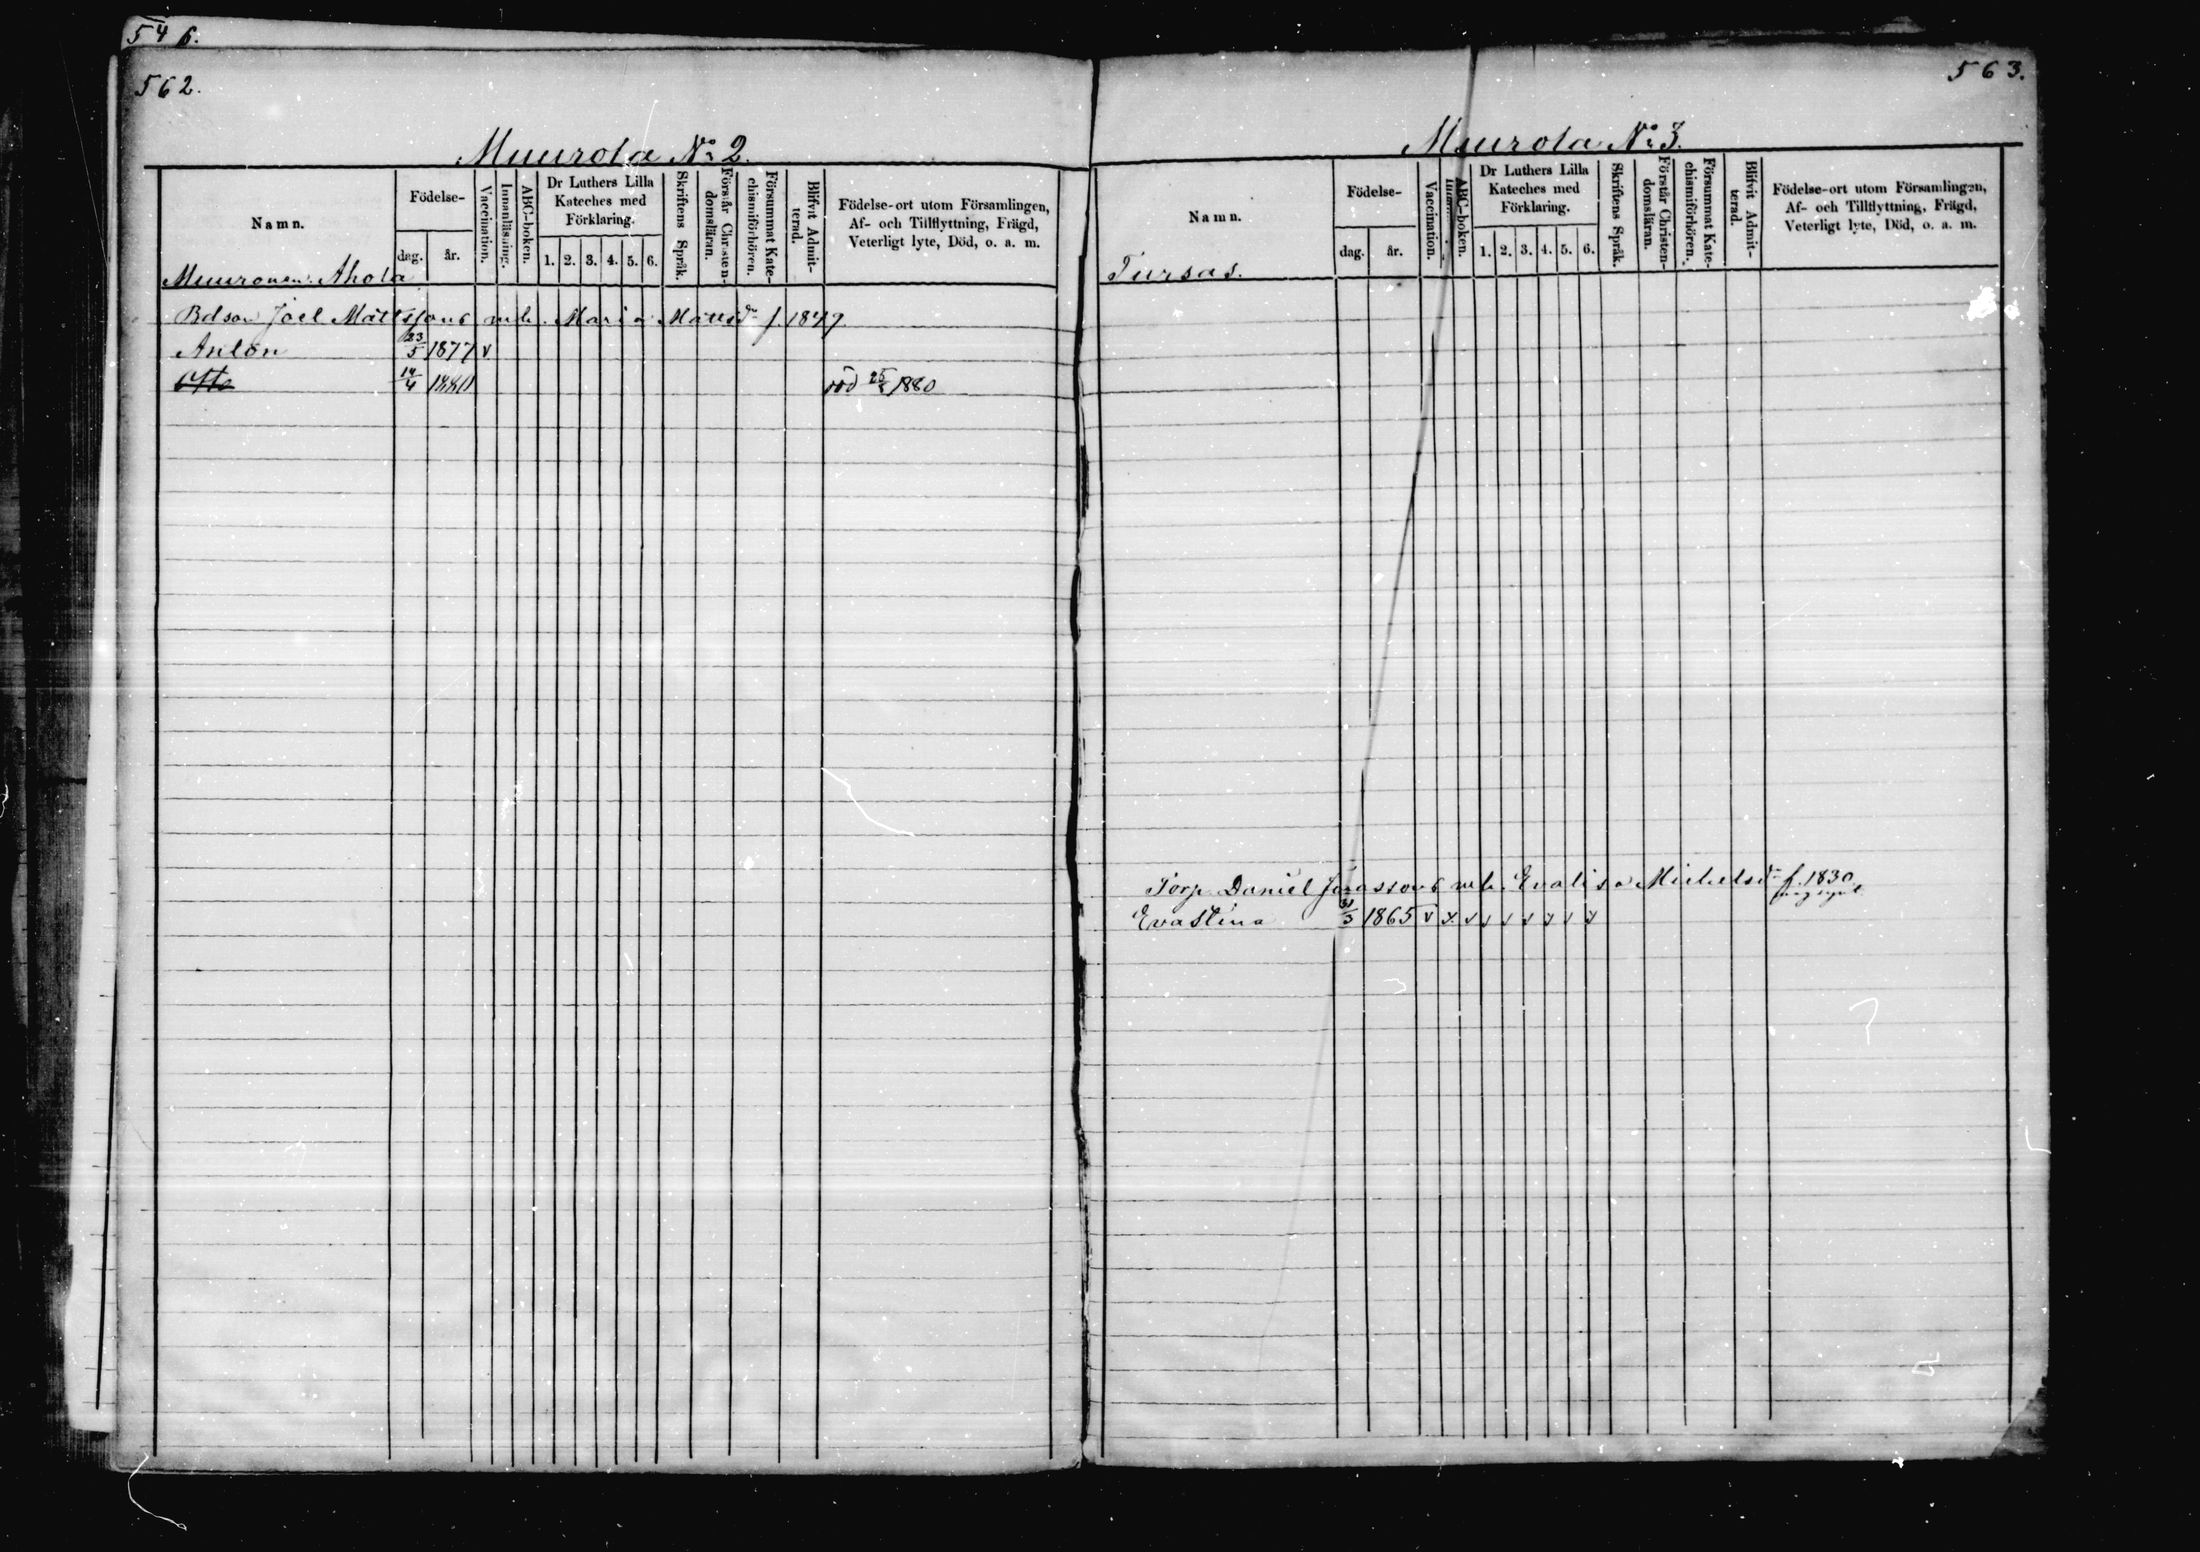 546.
562.
Muurola No 2.
Namn.
Födelse-
dag.
år.
Vaccination.
Innanläsning.
ABC-boken.
Dr Luthers Lilla
Kateches med
Förklaring.
1. 2. 3. 4. 5. 6.
Skriftens Språk.
Förstår Christen-
domsläran.
Försummat Kate-
chismiförhören.
Blifvit Admit-
terad.
Födelse-ort utom Församlingen,
Af- och Tillflyttning, Frägd,
Veterligt lyte, Död, o. a. m.
Muuronen: Ahola
Bdson Joel Mattssons enk. Maria Mattsdr f. 1847
Anton 23/5 1877 v
Otto 14/4 1880 död 25/8 1880
563.
Muurola No 3.
Namn.
Födelse-
dag.
år.
Vaccination.
ABC-boken.
Dr Luthers Lilla
Kateches med
Förklaring.
1. 2. 3. 4. 5. 6.
Skriftens Språk.
Förstår Christen-
domsläran.
Försummat Kate-
chismiförhören.
Blifvit Admit-
terad.
Födelse-ort utom Församlingen,
Af- och Tillflyttning, Frägd,
Veterligt lyte, Död, o. a. m.
Tursas.
Torp. Daniel Jonassons enk. Evalisa Michelsdr f. 1830
Evastina 31/3 1865 v x v v v v v v v